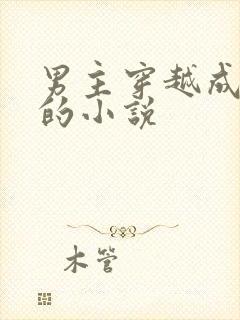 男主穿越成
的小说
木管